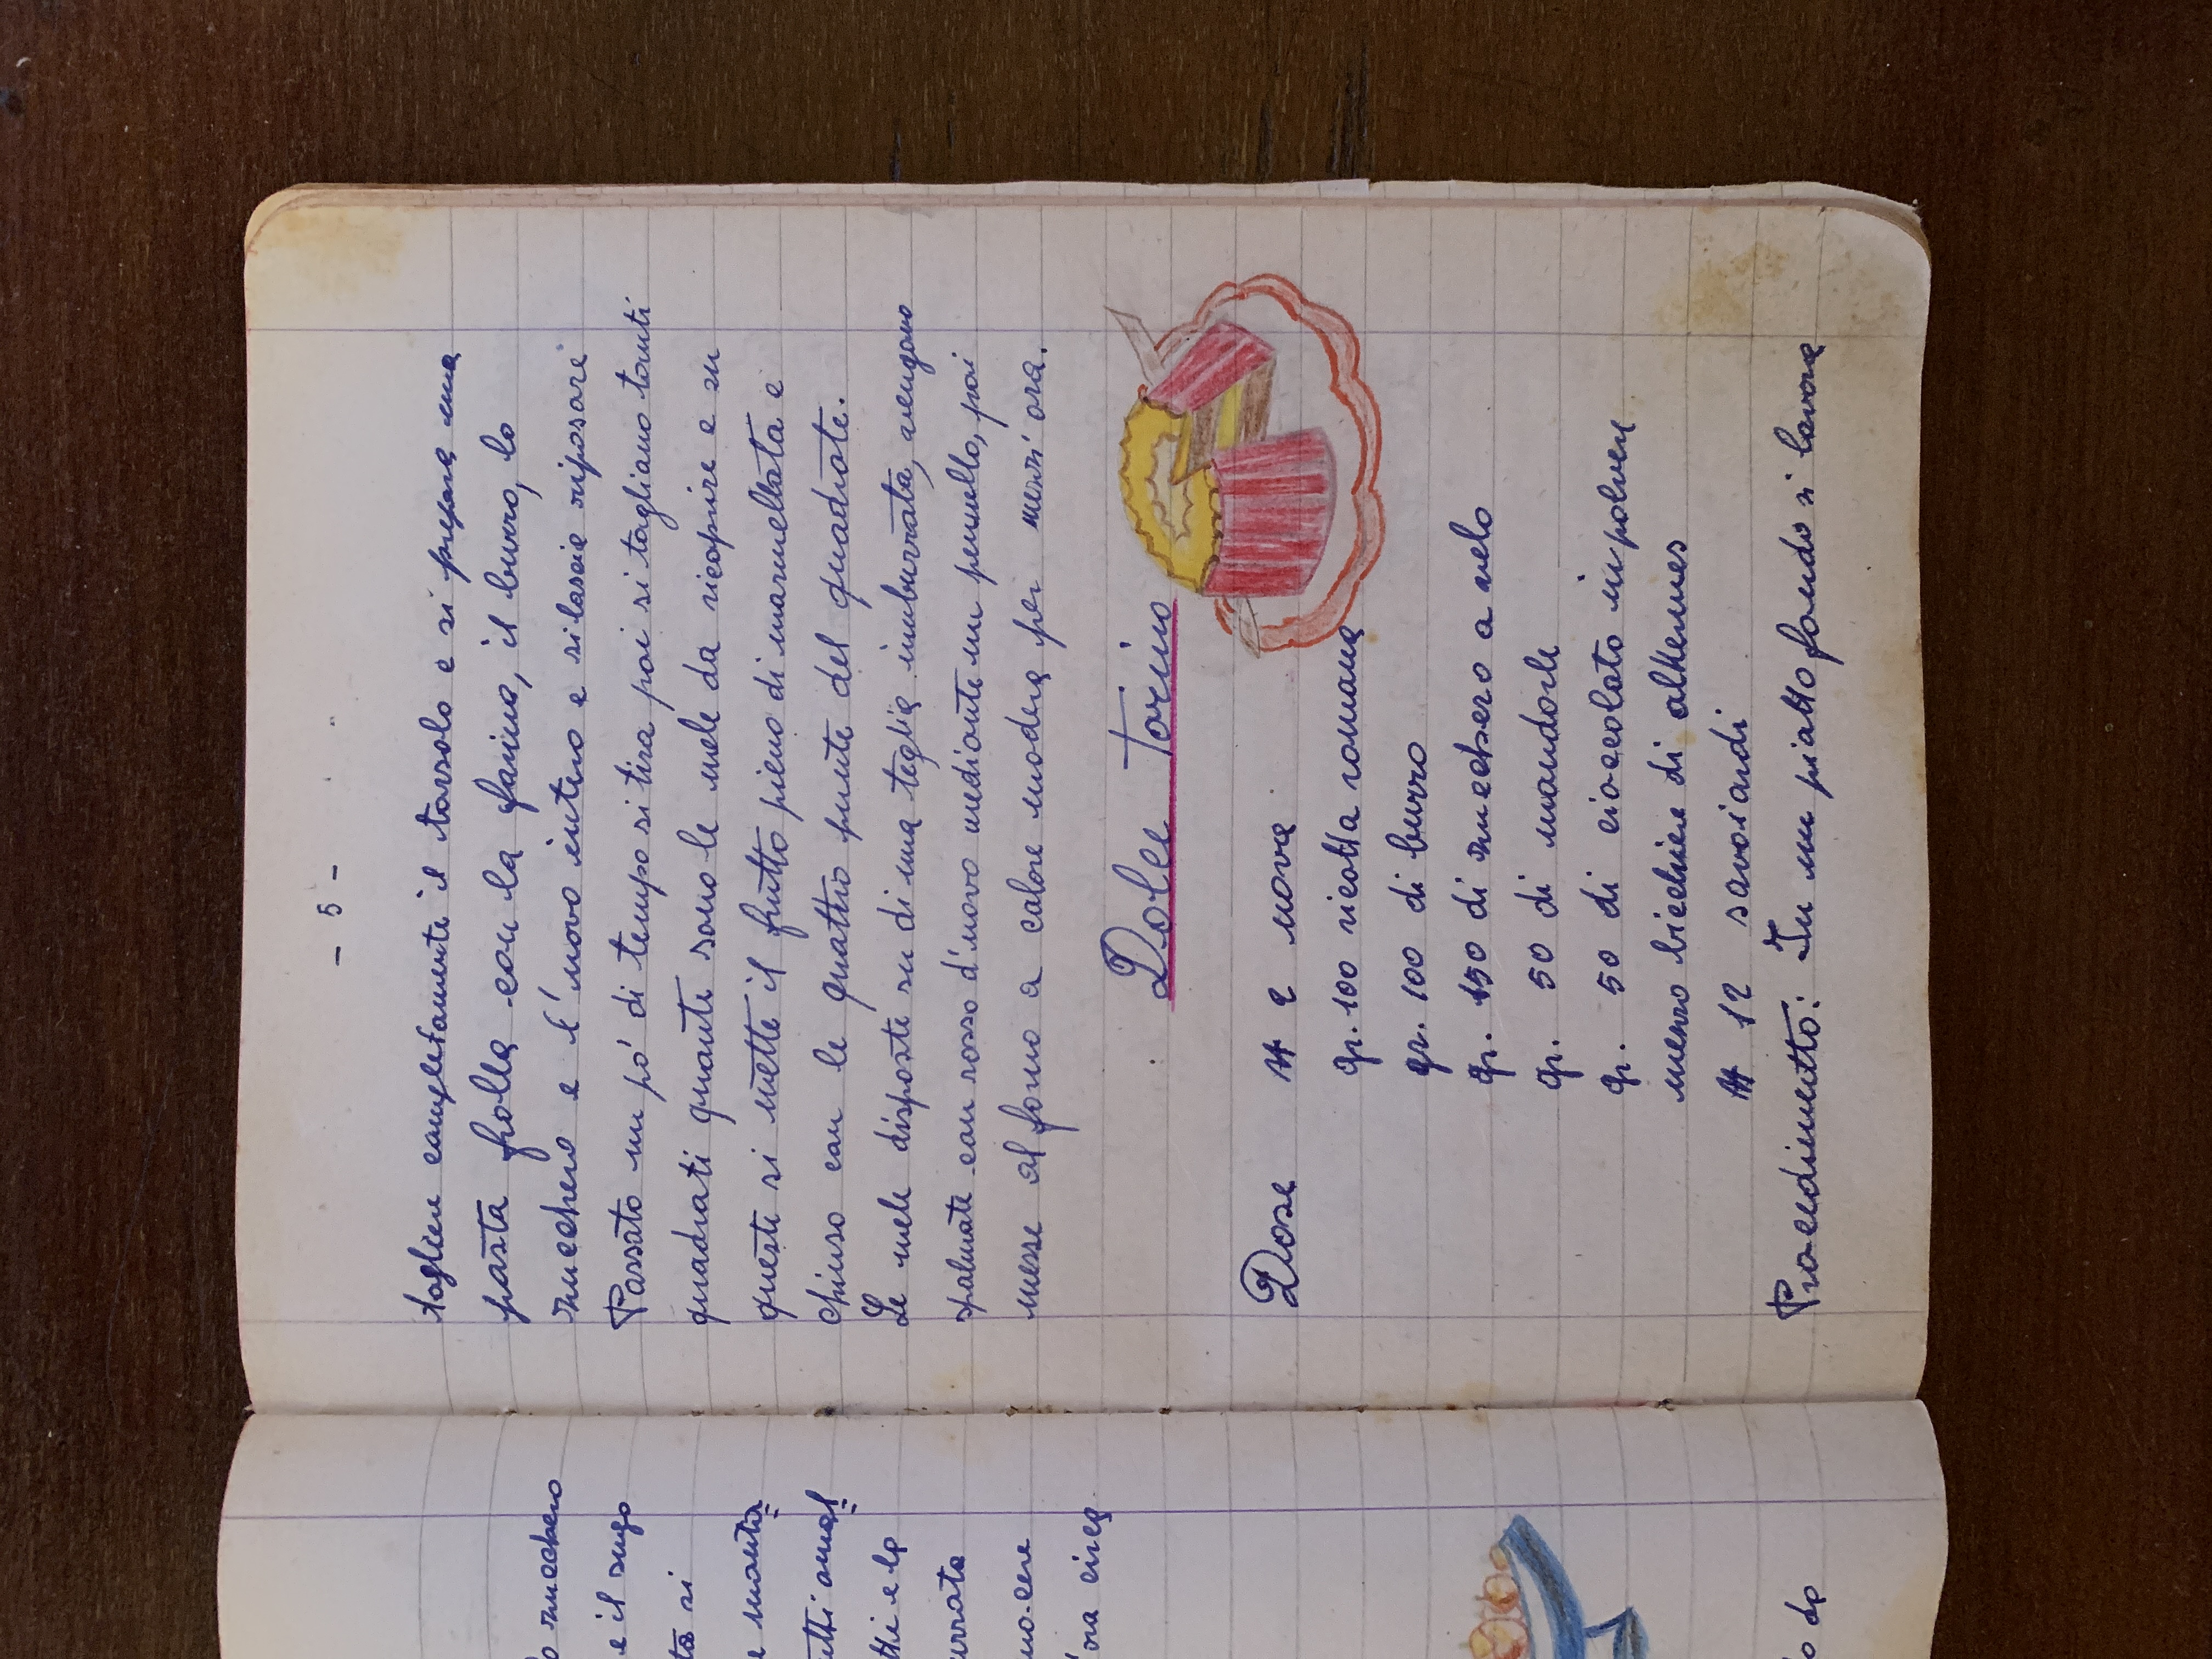 o zucchero
e il sugo
ta si
e manta
utti amal
tti e la
urrata
no-cere
'ora circa
o da
- 5 -
togliere completamente il torsolo e si prepara una
pasta frolla con la farina, il burro, lo
zucchero e l'uovo intero e si lascia riposare
Passato un pò di tempo si tira poi si tagliano tanti
quadrati quante sono le mele da ricoprire e su
queste si mette il frutto pieno di marmellata e
chiuso con le quattro punte del quadrate.
Le mele disposte su di una teglia imburrata, vengono
spalmate con rosso d'uovo mediante un pennello, poi
messe al forno a calore modera per mezz'ora.
Dolce Torino
Dose N 2 uova
gr. 100 ricotta romana
gr. 100 di burro
gr. 150 di zucchero a velo
gr. 50 di mandorle
gr. 50 di cioccolato in polvere
mezzo bicchiere di alkermes
N 12 savoiardi
Procedimento: In un piatto fondo si lavora